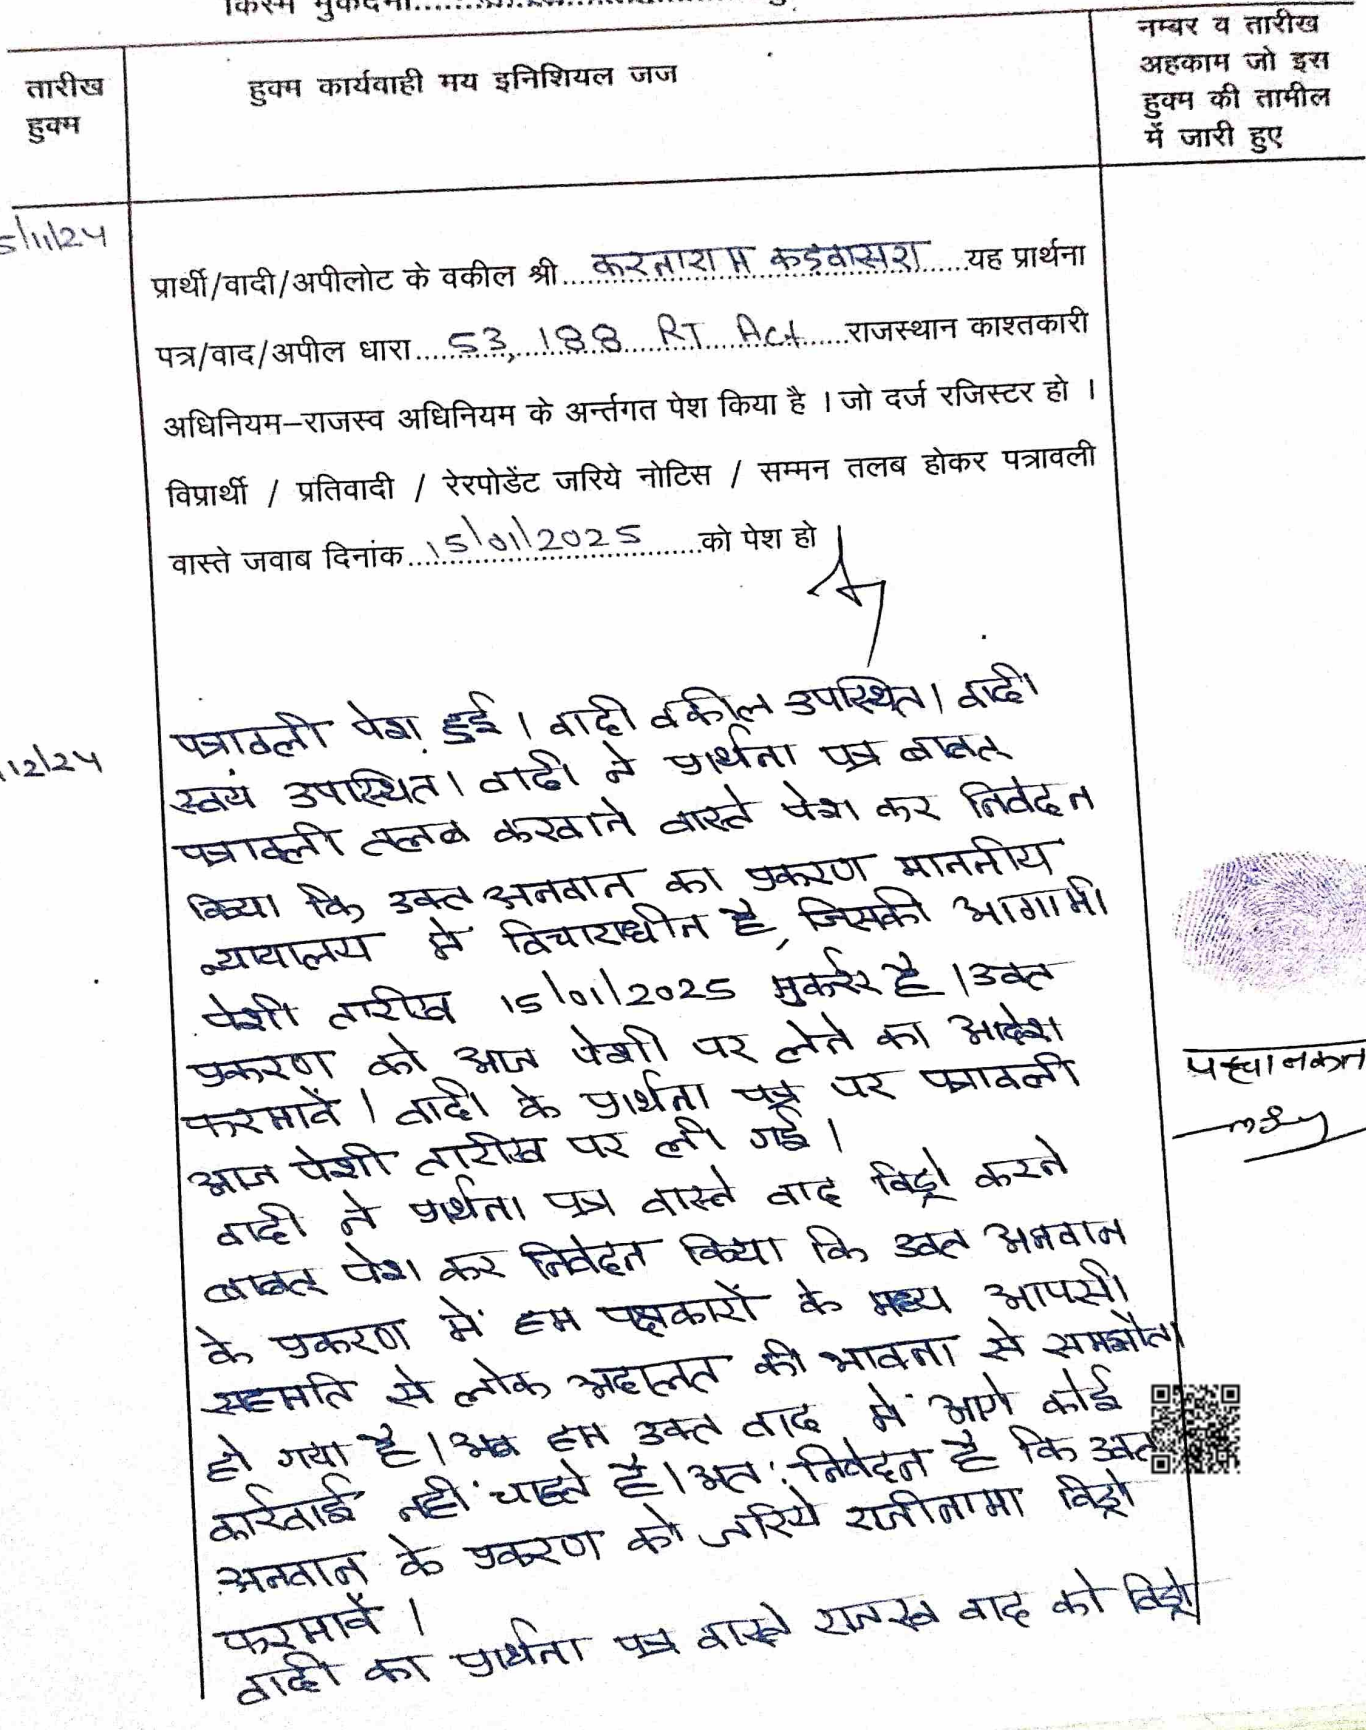 किस्म मुकदमा
तारीख
हुक्म
हुक्म कार्यवाही मय इनिशियल जज
नम्बर व तारीख
अहकाम जो इस
हुक्म की तामील
में जारी हुए
5/11/24
प्रार्थी/वादी/अपीलोट के वकील श्री करनाराम कड़वासरा यह प्रार्थना
पत्र/वाद/अपील धारा 53, 188 RT Act राजस्थान काश्तकारी
अधिनियम–राजस्व अधिनियम के अर्न्तगत पेश किया है । जो दर्ज रजिस्टर हो ।
विप्रार्थी / प्रतिवादी / रेरपोडेंट जरिये नोटिस / सम्मन तलब होकर पत्रावली
वास्ते जवाब दिनांक 15/01/2025 को पेश हो
12/24
पत्रावली पेश हुई । वादी वकील उपस्थित । वादी
स्वयं उपस्थित । वादी ने प्रार्थना पत्र बाबत्
पत्रावली तलब करवाने वास्ते पेश कर निवेदन
किया कि उक्त अनवान का प्रकरण माननीय
न्यायालय में विचाराधीन है, जिसकी आगामी
पेशी तारीख 15/01/2025 मुकर्रर है । उक्त
प्रकरण को आज पेशी पर लेने का आदेश
फरमावें । वादी के प्रार्थना पत्र पर पत्रावली
आज पेशी तारीख पर ली गई ।
वादी ने प्रार्थना पत्र वास्ते वाद विड्रो करने
बाबत् पेश कर निवेदन किया कि उक्त अनवान
के प्रकरण में हम पक्षकारों के मध्य आपसी
सहमति से लोक अदालत की भावना से समझौता
हो गया है । अब हम उक्त वाद में आगे कोई
कार्रवाई नहीं चाहते है । अतः निवेदन है कि उक्त
अनवान के प्रकरण को जरिये राजीनामा विड्रो
फरमावें ।
वादी का प्रार्थना पत्र वास्ते राजस्व वाद को विड्रो
पहचानकर्ता